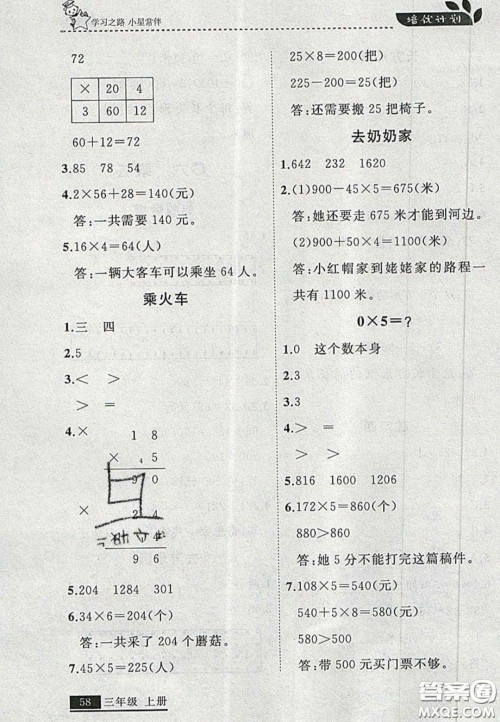 学习之路 小星常伴
培优计划
72
× 20 4
3 60 12
60+12=72
3.85 78 54
4.2×56+28=140(元)
答:一共需要 140 元。
5.16×4=64(人)
答:一辆大客车可以乘坐 64 人。
乘火车
1.三 四
2.5
3.< >
> =
4.×
1 8
× ₄ 5
9 0
×
2 4
9 6
5.204 1284 301
6.34×6=204(个)
答:一共采了 204 个蘑菇。
7.45×5=225(人)
25×8=200(把)
225-200=25(把)
答:还需要搬 25 把椅子。
去奶奶家
1.642 232 1620
2.(1)900-45×5=675(米)
答:她还要走 675 米才能到河边。
(2)900+50×4=1100(米)
答:小红帽家到姥姥家的路程一
共有 1100 米。
0×5=?
1.0 这个数本身
2.3
3.3
4.> =
> =
5.816 1600 1206
6.172×5=860(个)
880>860
答:她 5 分不能打完这篇稿件。
7.108×5=540(元)
540+5×8=580(元)
580>500
答:带 500 元买门票不够。
58 三年级 上册
答案圈